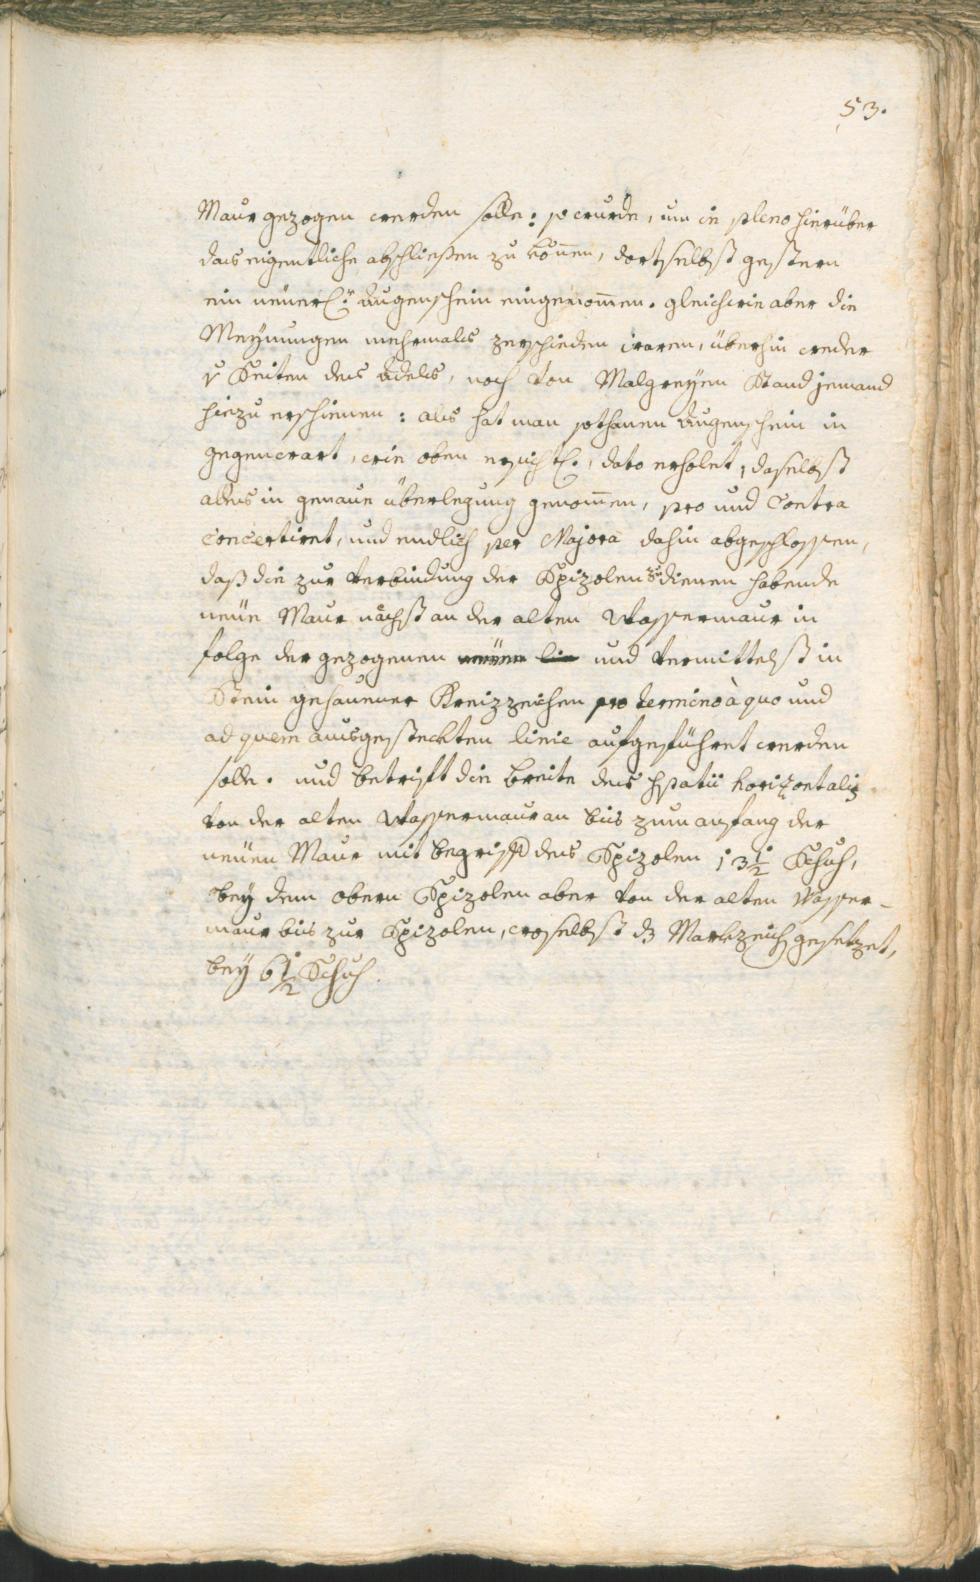 53.
Maur gezogen werden solle: so wurde, um in pleno hierüber
das eigentliche abschließen zu könen, dortselbst gestern
ein neüerl: Augenschein eingenomen. gleichwie aber die
Meynungen mehrmals zerschieden waren, überhin weder
Seiten des Adels, noch von Malgreyen Stand jemand
hiezu erschienen: als hat man sothanen Augenschein in
gegenwart, wie oben ersichtl:, dato erholet, daselbst
alles in genaue überlegung genomen, pro und contra
concertiret, und endlich per Majora dahin abgeschlossen,
daß die zur verbindung der Spizolen zu dienen habende
neüe Maur nächst an der alten Wassermaur in
folge der gezogenen neüen lin und vermittelst in
Stein gehauener Kreizzeichen pro termino à quo und
ad quem ausgesteckten linie aufgeführet werden
solle. und betrift die breite des spatii horizontalis
von der alten Wassermaur an bis zum anfang der
neüen Maur mit begriff des Spizolen 13 1/2 Schuh,
bey dem obern Spizolen aber von der alten Wasser-
maur bis zur Spizolen, woselbst dz Markzeich gesetzet,
bey 6 1/2 Schuh.